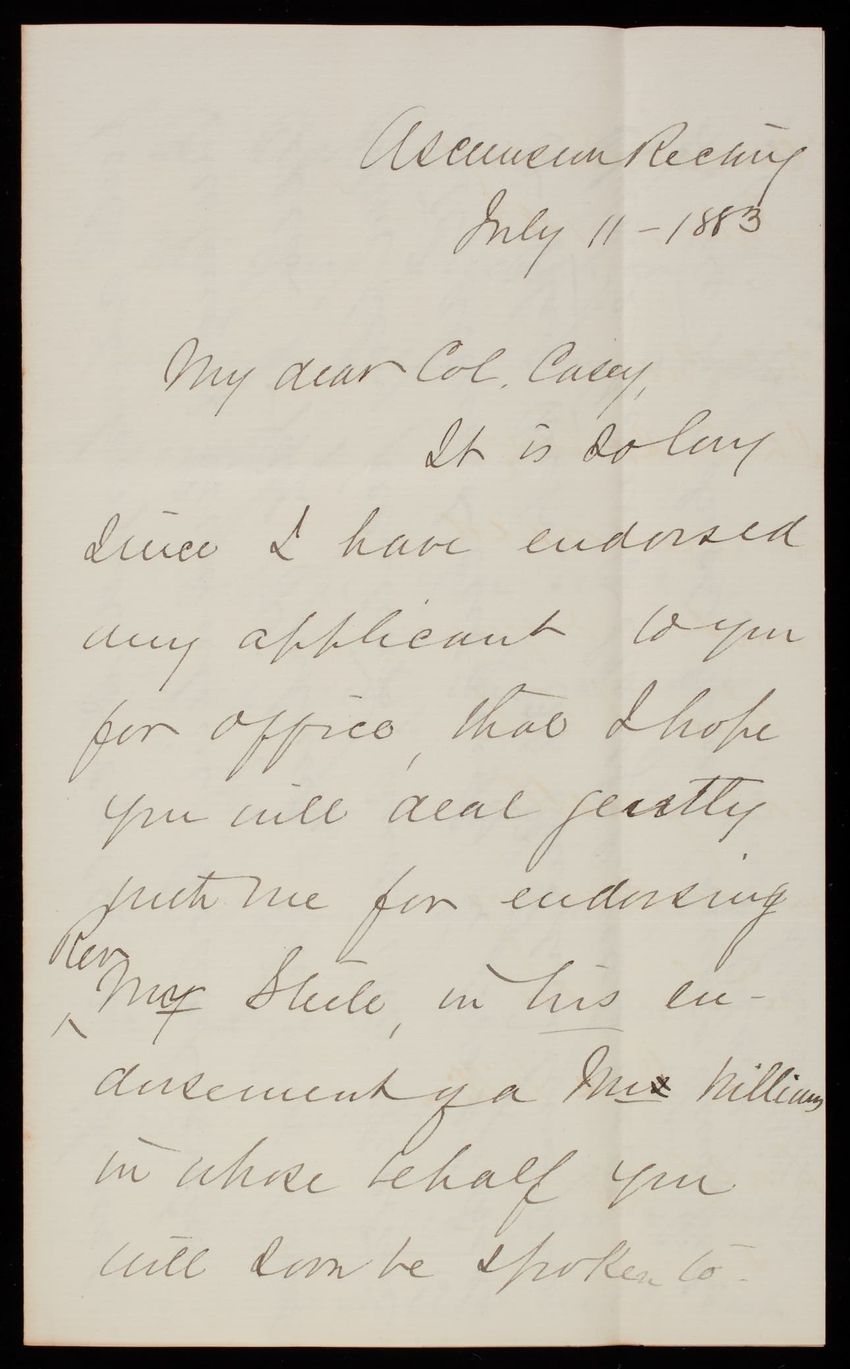 Ascension Rectory
July 11 - 1883
My dear Col. Casey,
It is so long
since I have endorsed
any applicant to you
for office, that I hope
you will deal gently
with me for endorsing
Rev
Mr Steele, in his en-
dorsement of a Mr Williams
in whose behalf you
will soon be spoken to.